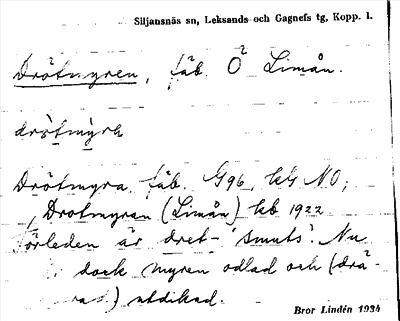 Siljansnäs sn, Leksands och Gagnefs tg, Kopp. l.
Drötmyren, fäb. Ö Limån.
dröt̀mỳra
Drötmyra fäb. G96, kG NO;
Drotmyran (Limån) kb 1922
örleden är dret- 'smuts'. Nu
dock myren odlad och (drä-
) utdikad.
Bror Lindén 1934